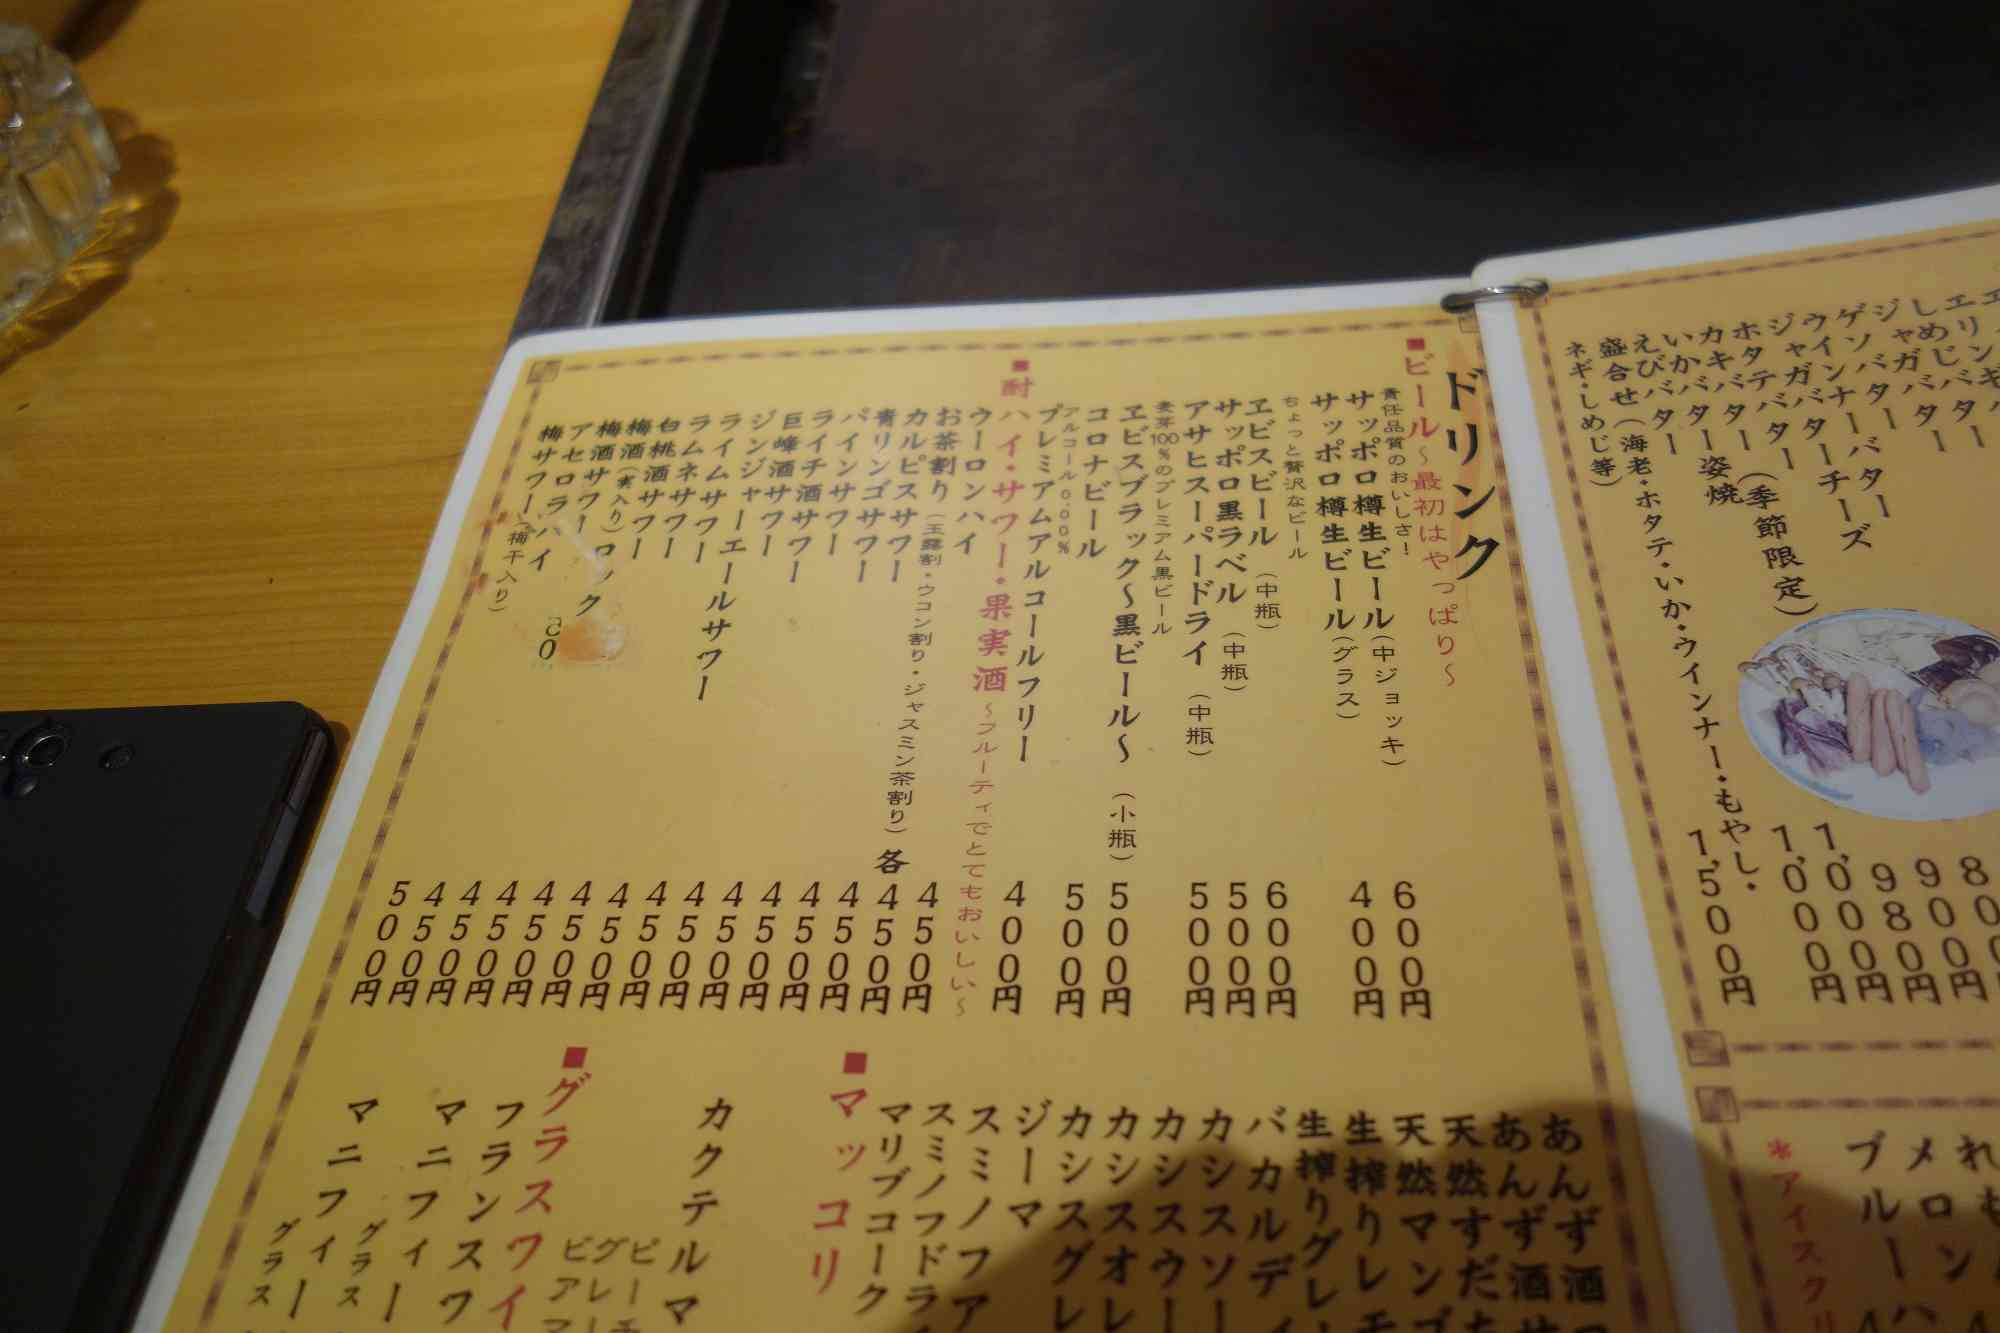 ドリンク
■ビール～最初はやっぱり～
責任品質のおいしさ!
サッポロ樽生ビール(中ジョッキ) 600円
サッポロ樽生ビール(グラス) 400円
ちょっと贅沢なビール
ヱビスビール (中瓶) 600円
サッポロ黒ラベル (中瓶) 500円
アサヒスーパードライ (中瓶) 500円
麦芽100%のプレミアム黒ビール
ヱビスブラック～黒ビール～ (小瓶) 500円
コロナビール 500円
アルコール0.00%
プレミアムアルコールフリー 400円
■酎ハイ・サワー・果実酒～フルーティでとてもおいしい～
ウーロンハイ 450円
お茶割り(玉露割・ウコン割り・ジャスミン茶割り)各 450円
カルピスサワー 450円
青リンゴサワー 450円
パインサワー 450円
ライチ酒サワー 450円
巨峰酒サワー 450円
ジンジャーエールサワー 450円
ライムサワー 450円
ラムネサワー 450円
白桃酒サワー 450円
梅酒(実入り)ロック 450円
梅酒サワー 450円
アセロラハイ 450円
梅サワー(梅干入り) 500円
あんず酒
あんず酒
天然すだち
天然マンゴ
生搾りレモ
生搾りグレ
バカルディ
カシスソー
カシスウー
カシスオレ
カシスグレ
ジーマ
スミノフア
スミノフドラ
マリブコーク
■マッコリ
カクテルマ
ピーチ
グレー
ビア
■グラスワイ
フランスワ
マニフィー
グラス
マニフィー
グラス
しめじバター
ジャガバター
ゲソバター
ウインナーバター
ジャガバターチーズ
ホタテバター
カキバター(季節限定)
いかバター姿焼
えびバター
盛合せ(海老・ホタテ・いか・ウインナー・もやし・
ネギ・しめじ等)
900円
980円
1,000円
1,000円
1,500円
*アイスクリ
ブルーハ
メロン